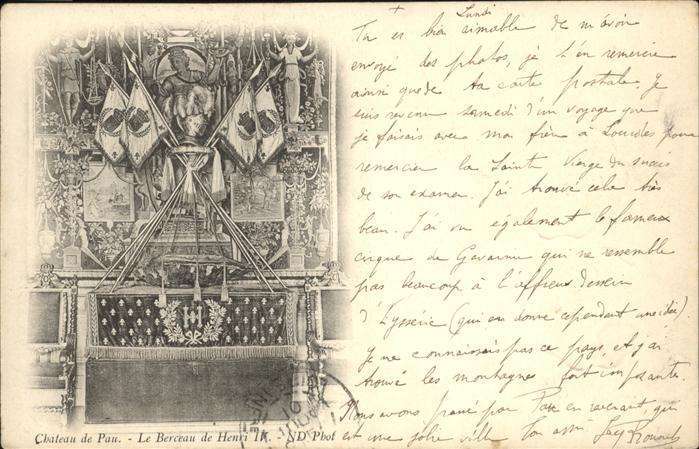 + Lundi
Tu es bien aimable de m'avoir
envoyé des photos, je t'en remercie
ainsi que de ta carte postale. Je
suis revenu samedi d'un voyage que
je faisais avec mon frère à Lourdes pour
remercier la Sainte Vierge du succès
de son examen. J'ai trouvé cela très
beau. J'ai vu également le fameux
cirque de Gavarnie qui ne ressemble
pas beaucoup à l'affreux dessin
d' (qui en donne cependant une idée).
Je ne connaissais pas ce pays et j'ai
trouvé les montagnes fort imposantes.
Nous avons passé par Pau en revenant, qui
est une jolie ville Ton ami
Château de Pau. - Le Berceau de Henri IV. - ND Phot